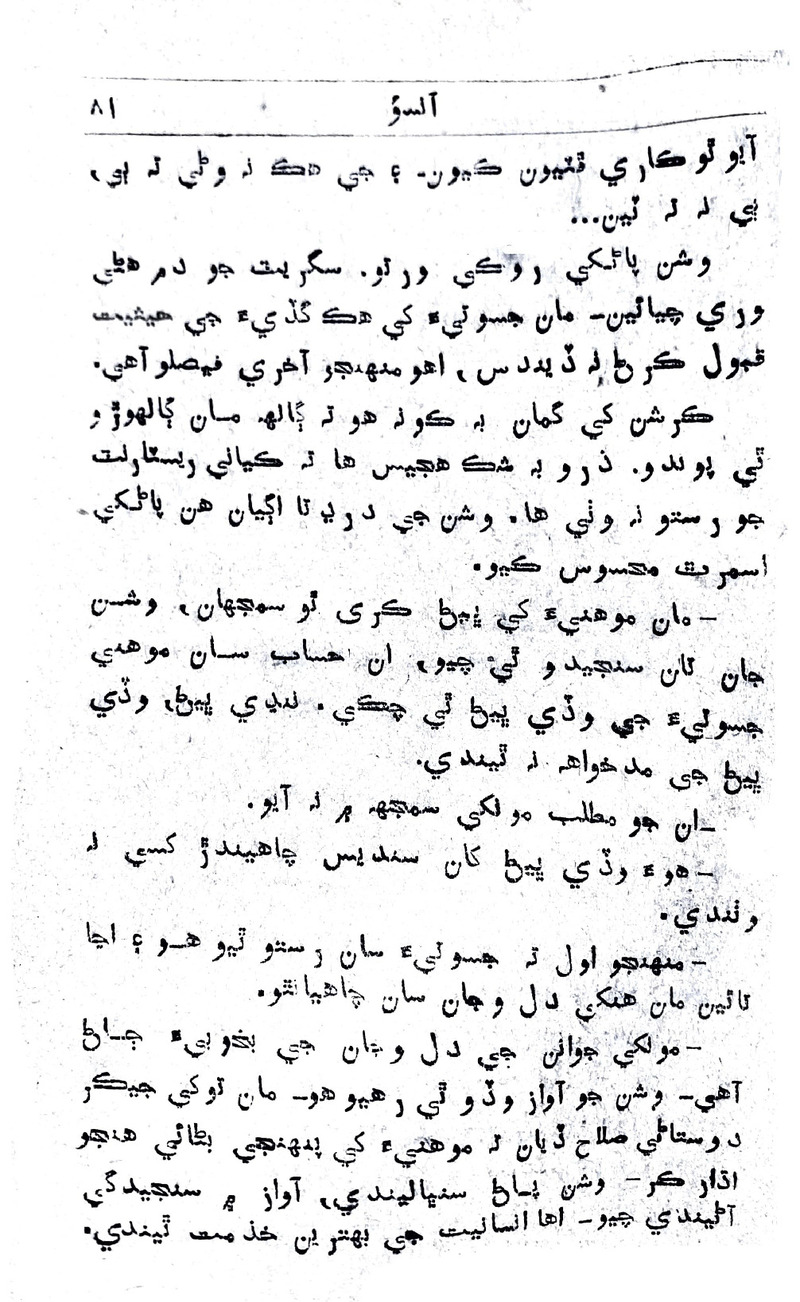 ٨١ آلسؤ
آيو ٿو ڪاري ڦٽيون ڪيون۔ ۽ جي هڪ نہ وڻي تہ ٻي،
ٻي نہ تہ ٽين...
وشن پاڻکي روڪي ورتو. سگريٽ جو دم هڻي
وري چيائين۔ مان جسوتيءَ کي هڪ گڏيءَ جي حيثيت
قبول ڪرڻ نہ ڏيندس، اهو منهنجو آخري فيصلو آهي.
ڪرشن کي گمان بہ ڪونہ هو تہ ڳالھ مان ڳالهوڙو
ٿي پوندو. ذرو بہ شڪ هجيس ها تہ ڪياني ريسٽارنٽ
جو رستو نہ وٺي ها. وشن جي درڍتا اڳيان هن پاڻکي
اسمرٿ محسوس ڪيو.
– مان موهنيءَ کي ڀيڻ ڪري ٿو سمجهان، وشن
ڄاڻ تان سنجيدو ٿي چيو، ان حساب سان موهني
جسوتيءَ جي وڏي ڀيڻ ٿي چڪي. ننڍي ڀيڻ، وڏي
ڀيڻ جي مدخواهہ نہ ٿيندي.
–ان جو مطلب مونکي سمجهہ ۾ نہ آيو.
– هوءَ وڏي ڀيڻ کان سنديس چاهيندڙ کسي نہ
وٺندي.
– منهنجو اول تہ جسوتيءَ سان رستو ٿيو هو ۽ اڃا
تائين مان هنکي دل و جان سان چاهيانٿو.
– مونکي جوانن جي دل و جان جي بخوبيءَ ڄاڻ
آهي– وشن جو آواز وڏو ٿي رهيو هو– مان توکي جيڪر
دوستاڻي صلاح ڏيان تہ موهنيءَ کي پنهنجي بڻائي هنجو
اڌار ڪر– وشن پاڻ سنڀاليندي، آواز ۾ سنجيدگي
آڻيندي چيو– اها انسانيت جي بهترين خدمت ٿيندي.